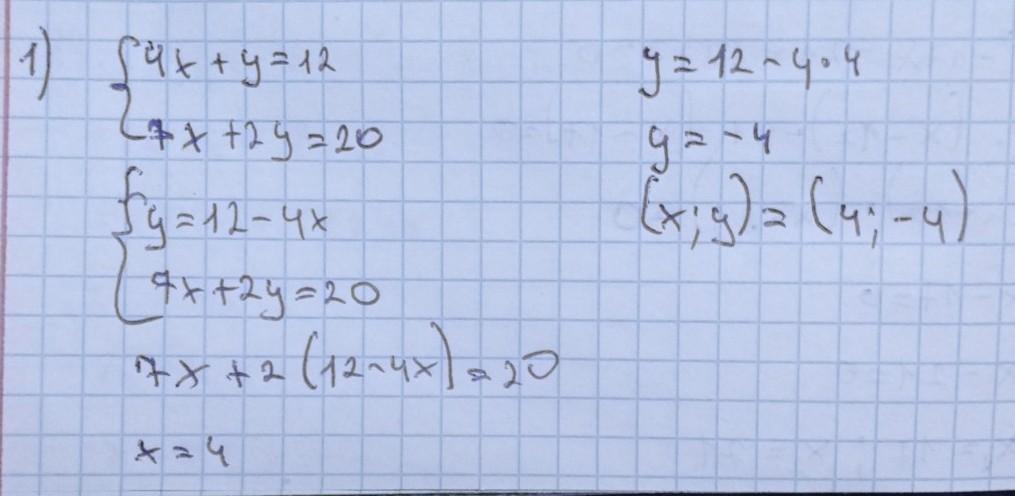 1) {4x + y = 12
7x + 2y = 20
{y = 12 - 4x
7x + 2y = 20
7x + 2(12 - 4x) = 20
x = 4
y = 12 - 4·4
y = -4
(x; y) = (4; -4)